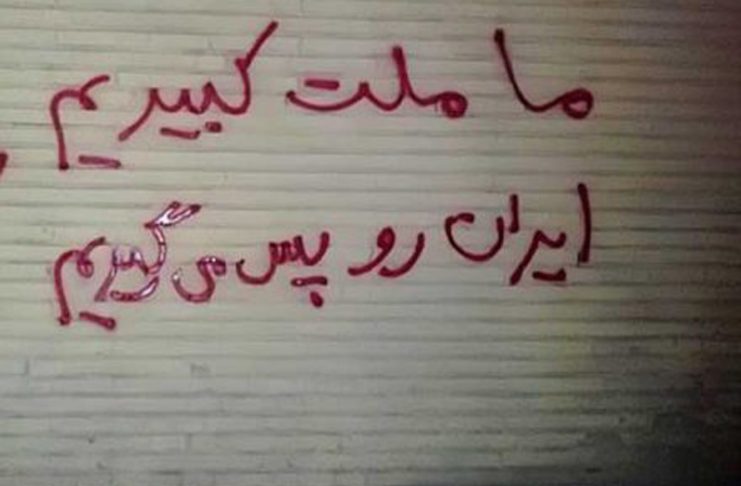 ما ملت کبیریم
ایران رو پس می گیریم